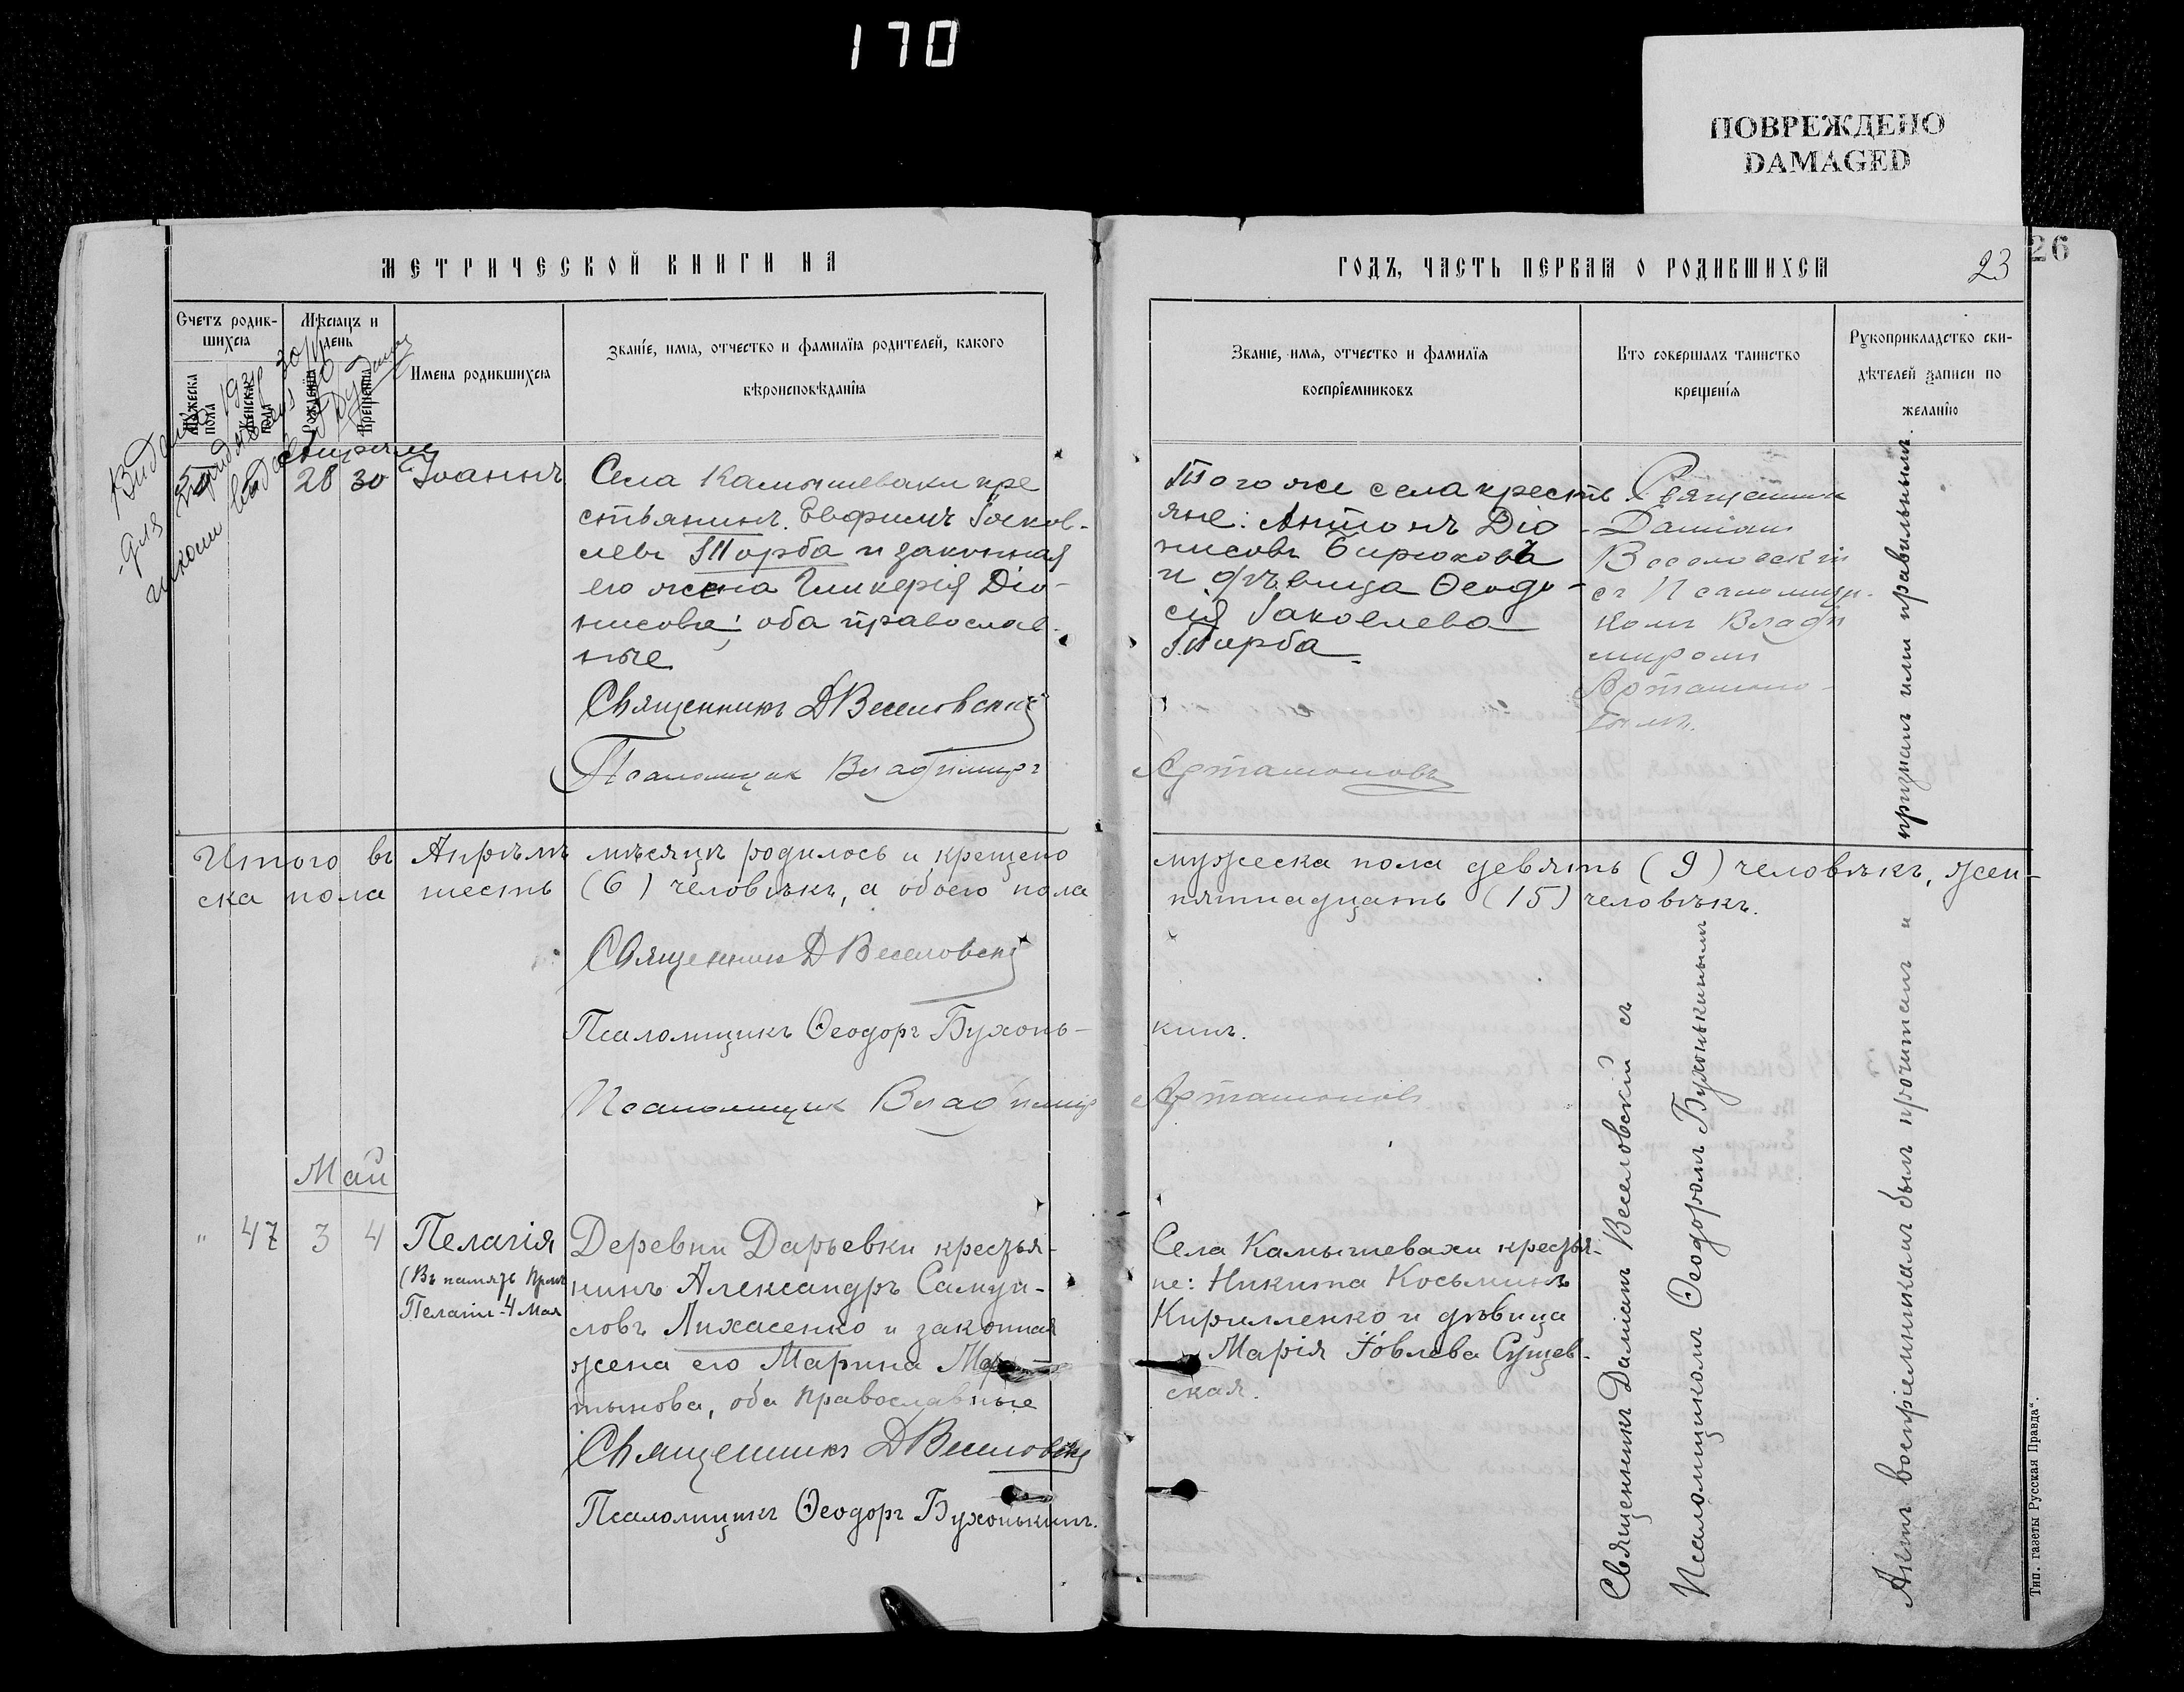 170
ПОВРЕЖДЕНО
DAMAGED
МЕТРИЧЕСКОЙ КНИГИ НА
ГОДЪ, ЧАСТЬ ПЕРВАЯ О РОДИВШИХСЯ
23
26
Счетъ родив-
шихся
Мѣсяцъ и
день
Мужеска
пола
Женска
пола
Рожденія
Крещенія
Имена родившихся
Званіе, имя, отчество и фамилія родителей, какого
вѣроисповѣданія
Званіе, имя, отчество и фамилія
воспріемниковъ
Кто совершалъ таинство
крещенія
Рукоприкладство сви-
дѣтелей записи по
желанію
28 30 Іоаннъ
Села Камышевахи кре
стьянинъ Евфимъ Іаков-
левъ Торба и законная
его жена Гликерія Діо-
нисова; оба православ-
ные
Священникъ Д Веселовскій
Псаломщик Владимиръ
Того же села кресть
яне: Антонъ Діо
нисовъ Бирюковъ
и дѣвица Ѳеодо-
сія Іаковлева
Торба
Артамоновъ
Священник
Даміан
Веселовскій
съ Псаломщи-
комъ Влади
миром
Артамоно-
вымъ.
Итого въ Апрѣлѣ мѣсяцѣ родилось и крещено
мужеска пола девять (9) человѣкъ, жен-
ска пола шесть (6) человѣкъ, а обоего пола
пятнадцать (15) человѣкъ.
Священник Д Веселовскій
Псаломщикъ Ѳеодоръ Бухонь-
кинъ.
Псаломщик Владимир
Артамонов
Май
" 47 3 4 Пелагія
(Въ память Прмч
Пелагіи - 4 Мая
Деревни Дарьевки крестья-
нинъ Александръ Самуи-
ловъ Лихасенко и законная
жена его Марина Мар-
тынова, оба православные
Священникъ Д Веселовскій
Псаломщикъ Ѳеодоръ Бухонькинъ.
Села Камышевахи крестья-
не: Никита Косьминъ
Кирилленко и дѣвица
Марія Іовлева Сущев-
ская.
Священникъ Даміанъ Веселовскій съ
Псаломщикомъ Ѳеодоромъ Бухонькинымъ
Актъ воспріемникамъ былъ прочитанъ и признанъ ими правильнымъ.
Тип. газеты „Русская Правда“.